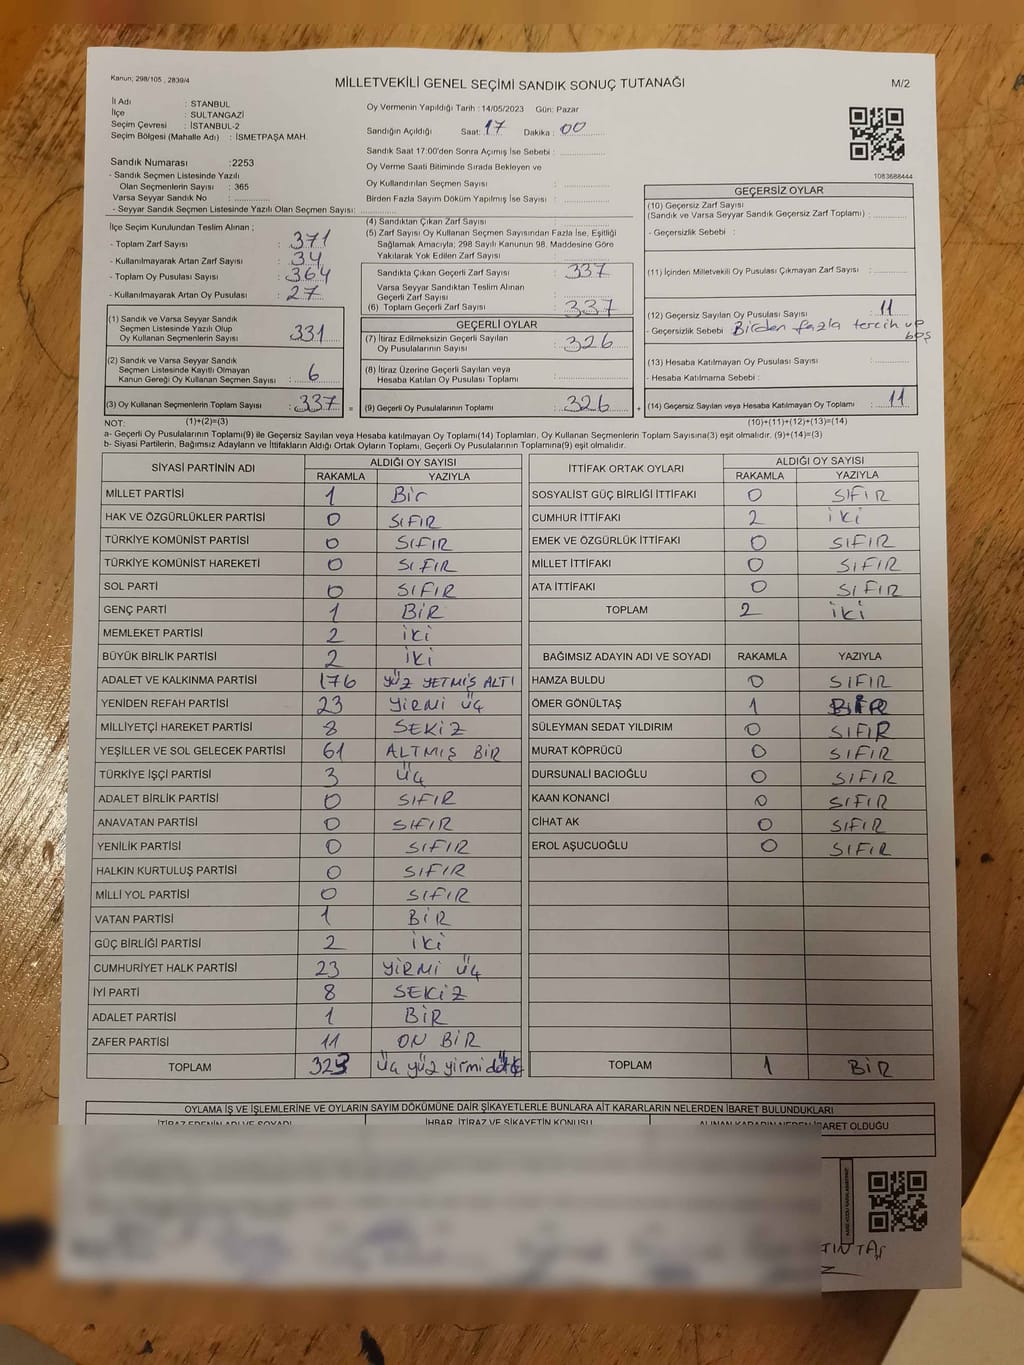 Kanun; 298/105 , 2839/4
MİLLETVEKİLİ GENEL SEÇİMİ SANDIK SONUÇ TUTANAĞI
M/2
İl Adı : STANBUL
İlçe : SULTANGAZİ
Seçim Çevresi : İSTANBUL-2
Seçim Bölgesi (Mahalle Adı) : İSMETPAŞA MAH.
Sandık Numarası :2253
- Sandık Seçmen Listesinde Yazılı
Olan Seçmenlerin Sayısı : 365
Varsa Seyyar Sandık No :
- Seyyar Sandık Seçmen Listesinde Yazılı Olan Seçmen Sayısı:
Oy Vermenin Yapıldığı Tarih : 14/05/2023 Gün: Pazar
Sandığın Açıldığı Saat: 17 Dakika : 00
Sandık Saat 17:00'den Sonra Açımış İse Sebebi :
Oy Verme Saati Bitiminde Sırada Bekleyen ve
Oy Kullandırılan Seçmen Sayısı :
Birden Fazla Sayım Döküm Yapılmış İse Sayısı :
1083688444
İlçe Seçim Kurulundan Teslim Alınan ;
- Toplam Zarf Sayısı : 371
- Kullanılmayarak Artan Zarf Sayısı : 34
- Toplam Oy Pusulası Sayısı : 364
- Kullanılmayarak Artan Oy Pusulası : 27
(1) Sandık ve Varsa Seyyar Sandık
Seçmen Listesinde Yazılı Olup
Oy Kullanan Seçmenlerin Sayısı : 331
(2) Sandık ve Varsa Seyyar Sandık
Seçmen Listesinde Kayıtlı Olmayan
Kanun Gereği Oy Kullanan Seçmen Sayısı : 6
(3) Oy Kullanan Seçmenlerin Toplam Sayısı : 337 =
(1)+(2)=(3)
(4) Sandıktan Çıkan Zarf Sayısı :
(5) Zarf Sayısı Oy Kullanan Seçmen Sayısından Fazla İse, Eşitliği
Sağlamak Amacıyla; 298 Sayılı Kanunun 98. Maddesine Göre
Yakılarak Yok Edilen Zarf Sayısı :
Sandıkta Çıkan Geçerli Zarf Sayısı : 337
Varsa Seyyar Sandıktan Teslim Alınan
Geçerli Zarf Sayısı :
(6) Toplam Geçerli Zarf Sayısı : 337
GEÇERLİ OYLAR
(7) İtiraz Edilmeksizin Geçerli Sayılan
Oy Pusulalarının Sayısı : 326
(8) İtiraz Üzerine Geçerli Sayılan veya
Hesaba Katılan Oy Pusulası Toplamı :
(9) Geçerli Oy Pusulalarının Toplamı : 326 +
GEÇERSİZ OYLAR
(10) Geçersiz Zarf Sayısı
(Sandık ve Varsa Seyyar Sandık Geçersiz Zarf Toplamı) :
- Geçersizlik Sebebi :
(11) İçinden Milletvekili Oy Pusulası Çıkmayan Zarf Sayısı :
(12) Geçersiz Sayılan Oy Pusulası Sayısı : 11
- Geçersizlik Sebebi : Birden fazla tercih
boş
(13) Hesaba Katılmayan Oy Pusulası Sayısı :
- Hesaba Katılmama Sebebi :
(14) Geçersiz Sayılan veya Hesaba Katılmayan Oy Toplamı : 11
(10)+(11)+(12)+(13)=(14)
NOT:
a- Geçerli Oy Pusulalarının Toplamı(9) ile Geçersiz Sayılan veya Hesaba katılmayan Oy Toplamı(14) Toplamları, Oy Kullanan Seçmenlerin Toplam Sayısına(3) eşit olmalıdır. (9)+(14)=(3)
b- Siyasi Partilerin, Bağımsız Adayların ve İttifakların Aldığı Ortak Oyların Toplamı, Geçerli Oy Pusulalarının Toplamına(9) eşit olmalıdır.
SİYASİ PARTİNİN ADI ALDIĞI OY SAYISI
RAKAMLA YAZIYLA
MİLLET PARTİSİ 1 Bir
HAK VE ÖZGÜRLÜKLER PARTİSİ 0 SIFIR
TÜRKİYE KOMÜNİST PARTİSİ 0 SIFIR
TÜRKİYE KOMÜNİST HAREKETİ 0 SIFIR
SOL PARTİ 0 SIFIR
GENÇ PARTİ 1 BİR
MEMLEKET PARTİSİ 2 iki
BÜYÜK BİRLİK PARTİSİ 2 iki
ADALET VE KALKINMA PARTİSİ 176 YÜZ YETMİŞ ALTI
YENİDEN REFAH PARTİSİ 23 YİRMİ ÜÇ
MİLLİYETÇİ HAREKET PARTİSİ 8 SEKİZ
YEŞİLLER VE SOL GELECEK PARTİSİ 61 ALTMIŞ BİR
TÜRKİYE İŞÇİ PARTİSİ 3 ÜÇ
ADALET BİRLİK PARTİSİ 0 SIFIR
ANAVATAN PARTİSİ 0 SIFIR
YENİLİK PARTİSİ 0 SIFIR
HALKIN KURTULUŞ PARTİSİ 0 SIFIR
MİLLİ YOL PARTİSİ 0 SIFIR
VATAN PARTİSİ 1 BİR
GÜÇ BİRLİĞİ PARTİSİ 2 iki
CUMHURİYET HALK PARTİSİ 23 YİRMİ ÜÇ
İYİ PARTİ 8 SEKİZ
ADALET PARTİSİ 1 BİR
ZAFER PARTİSİ 11 ON BİR
TOPLAM 323 Üç yüz yirmi
İTTİFAK ORTAK OYLARI ALDIĞI OY SAYISI
RAKAMLA YAZIYLA
SOSYALİST GÜÇ BİRLİĞİ İTTİFAKI 0 SIFIR
CUMHUR İTTİFAKI 2 iki
EMEK VE ÖZGÜRLÜK İTTİFAKI 0 SIFIR
MİLLET İTTİFAKI 0 SIFIR
ATA İTTİFAKI 0 SIFIR
TOPLAM 2 iki
BAĞIMSIZ ADAYIN ADI VE SOYADI RAKAMLA YAZIYLA
HAMZA BULDU 0 SIFIR
ÖMER GÖNÜLTAŞ 1 BİR
SÜLEYMAN SEDAT YILDIRIM 0 SIFIR
MURAT KÖPRÜCÜ 0 SIFIR
DURSUNALİ BACIOĞLU 0 SIFIR
KAAN KONANCİ 0 SIFIR
CİHAT AK 0 SIFIR
EROL AŞUCUOĞLU 0 SIFIR
TOPLAM 1 BİR
OYLAMA İŞ VE İŞLEMLERİNE VE OYLARIN SAYIM DÖKÜMÜNE DAİR ŞİKAYETLERLE BUNLARA AİT KARARLARIN NELERDEN İBARET BULUNDUKLARI
İTİRAZ EDENİN ADI VE SOYADI İHBAR, İTİRAZ VE ŞİKAYETİN KONUSU ALINAN KARARIN NEDEN İBARET OLDUĞU